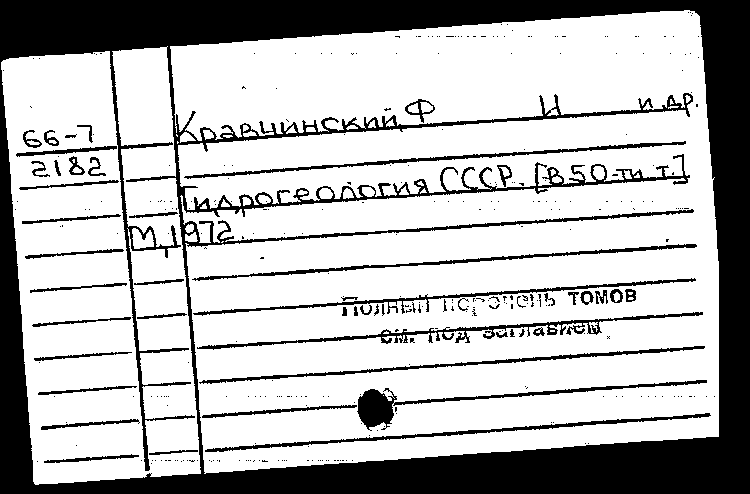 66-7
2182
Кравчинский, Ф И и др.
Гидрогеология СССР. [В 50-ти т.]
М, 1972.
Полный перечень томов
см. под заглавием